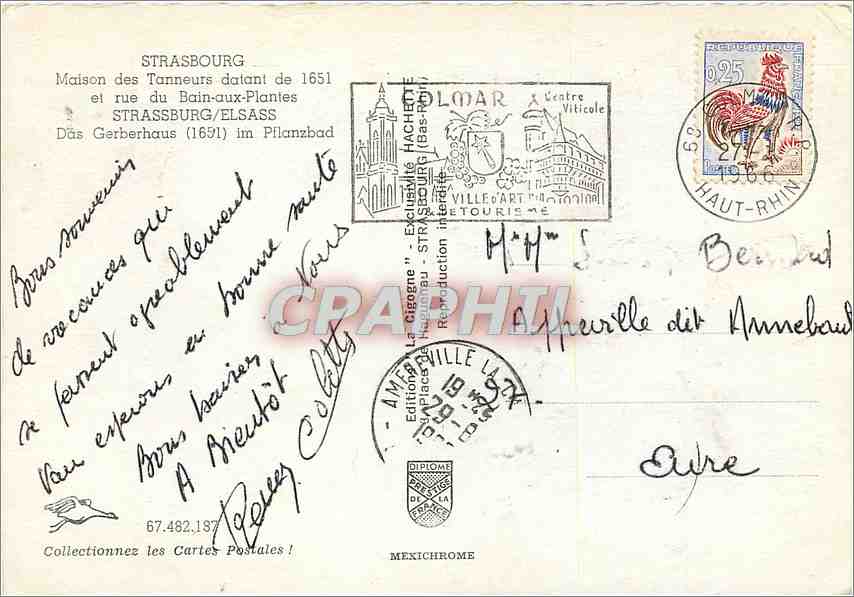 STRASBOURG
Maison des Tanneurs datant de 1651
et rue du Bain-aux-Plantes
STRASSBURG/ELSASS
Das Gerberhaus (1691) im Pflanzbad
COLMAR
Centre
Viticole
VILLE d'ART
TOURISME
REPUBLIQUE FRANÇAISE
0,25
68 COLMAR
1966
HAUT-RHIN
Editions "La Cigogne" - Exclusivité HACHETTE
Place de Haguenau - STRASBOURG (Bas-Rhin)
Reproduction interdite
Bons souvenirs
de vacances qui
se passent agréablement
Vous espérons en bonne santé
Bons baisers à Vous
A Bientôt
Colette
CPAPHIL
Mr Mme Bernard
Appeville dit Annebaut
Eure
19 H 45
29
DIPLOME
PRESTIGE
DE LA
FRANCE
67.482.187
Collectionnez les Cartes Postales !
MEXICHROME